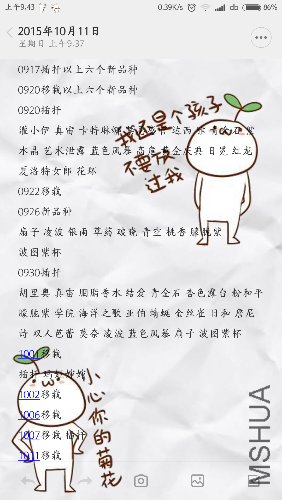 上午9.43
0.39K/s
86%
2015年10月11日
星期日 上午9.37
0917插扦以上六个新品种
0920移栽以上六个新品种
0920插扦
灌小伊 真宙 卡特琳娜
水晶 艺术泄露 蓝色风暴
夏洛特女郎 花环
0922移栽
0926新品种
扇子 凌波 银雨 草药 破晓 青空 桃香 朦胧紫
波图紫杯
0930插扦
胡里奥 真宙 胭脂香水 结爱 青金石 杏色露台 粉和平
朦胧紫 学院 海洋之歌 亚伯 蝴蝶 金丝雀 日和 詹尼
诗 双人芭蕾 莫奈 凌波 蓝色风暴 扇子 波图紫杯
1001移栽
插扦
1002移栽
1006移栽
1007移栽 插扦
1011移栽
我还是个孩子
不要放
过我
小心你的菊花
MSHUA